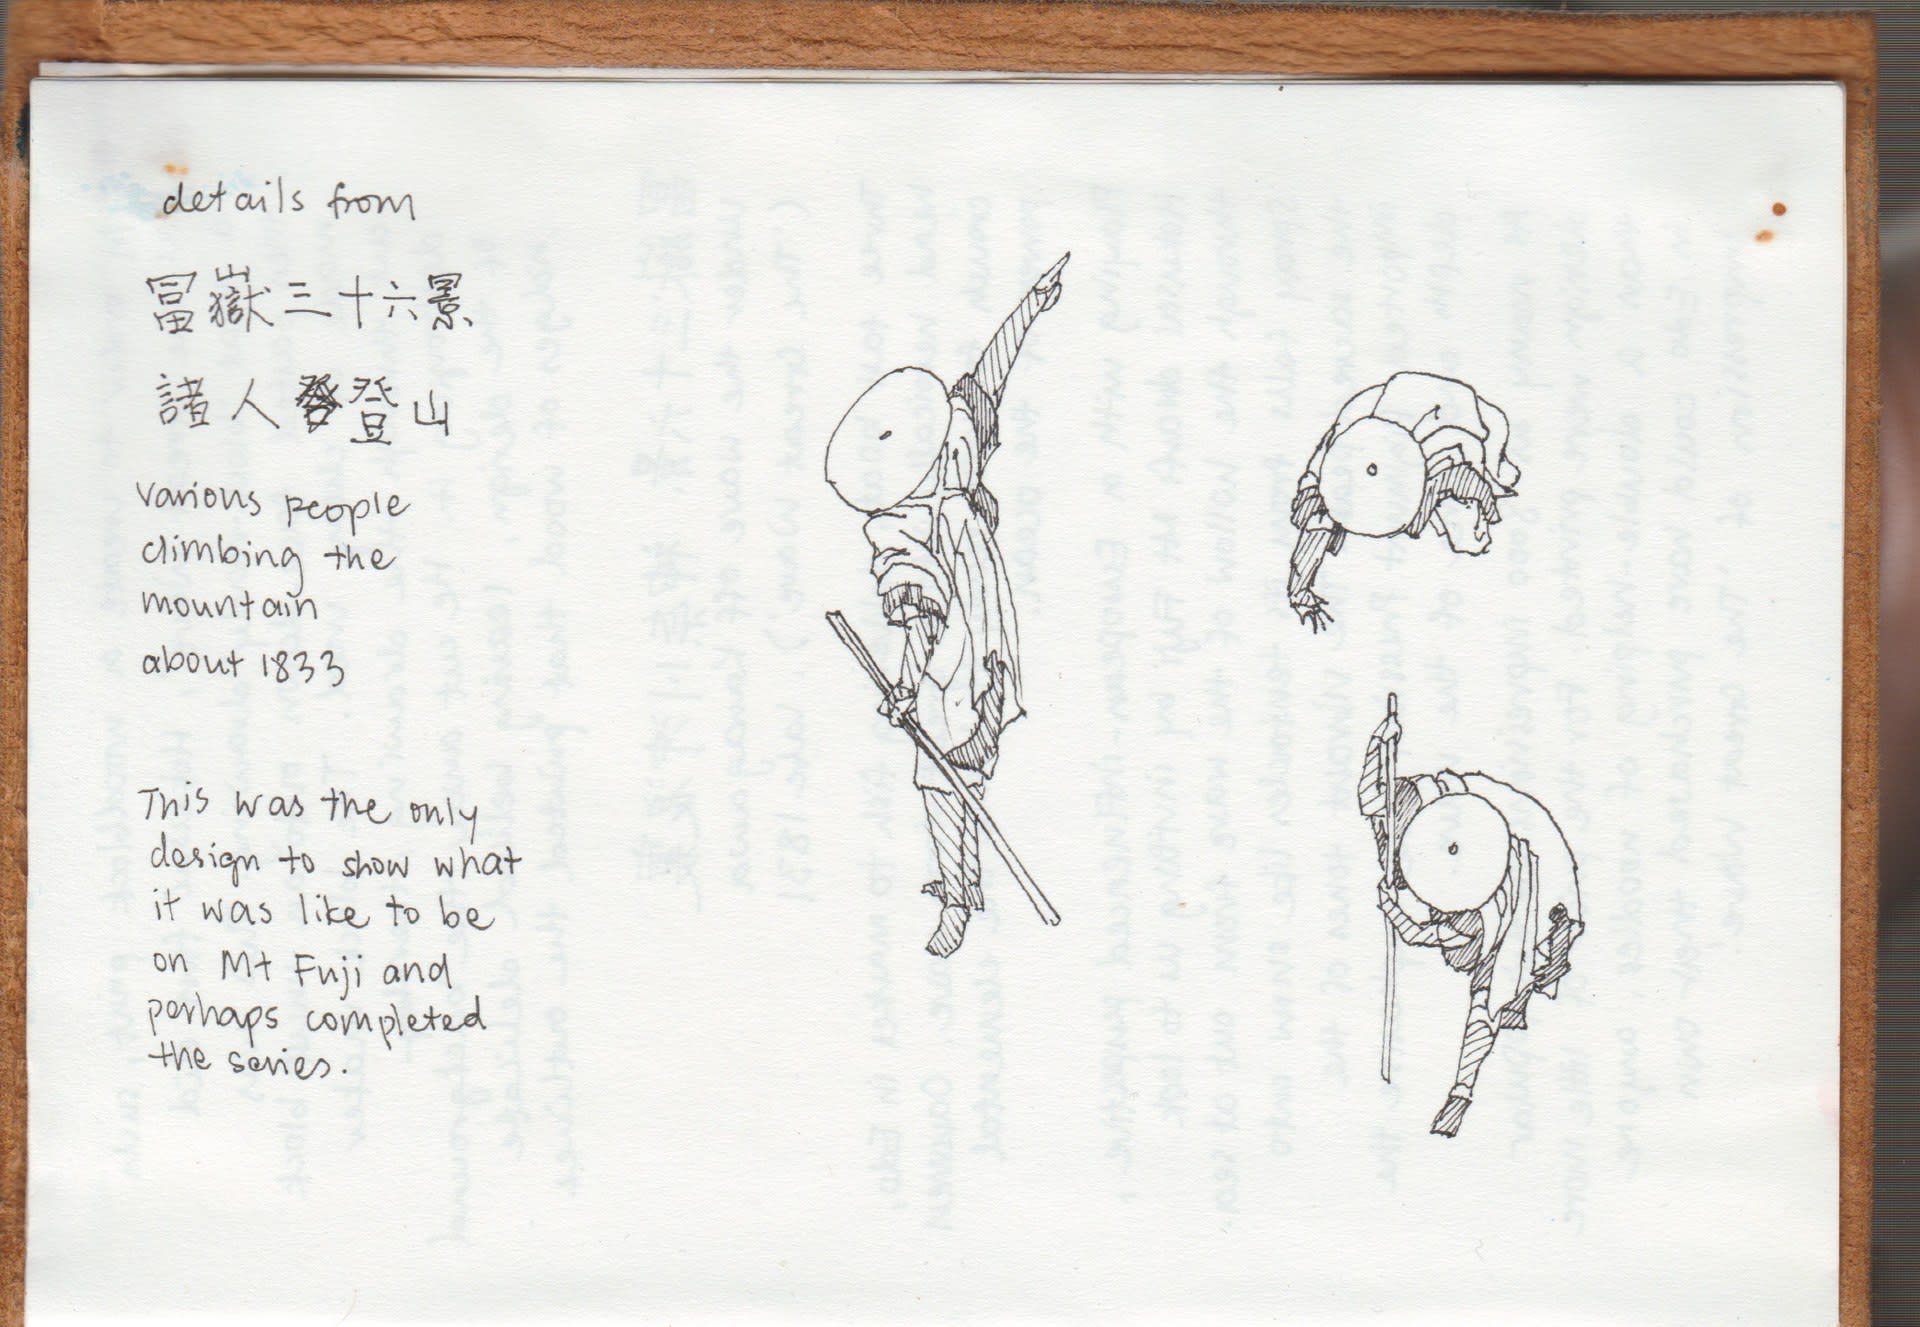 details from
冨嶽三十六景
諸人登山
various people
climbing the
mountain
about 1833
This was the only
design to show what
it was like to be
on Mt Fuji and
perhaps completed
the series.